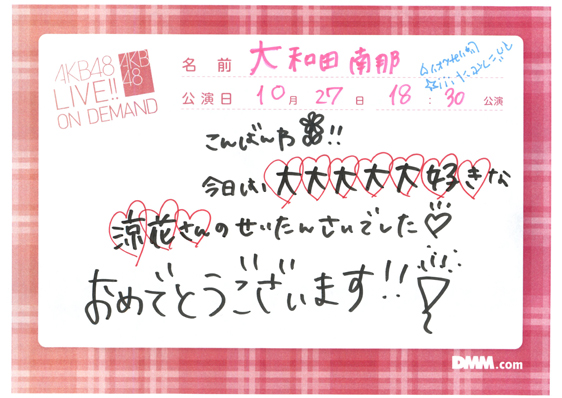 AKB48
LIVE!!
ON DEMAND
AKB
48
名前 大和田南那
公演日 10月27日 18:30公演
こんばんわ!!
今日は、大大大大大好きな
涼花さんのせいたんさいでした♡
おめでとうございます!!
DMM.com